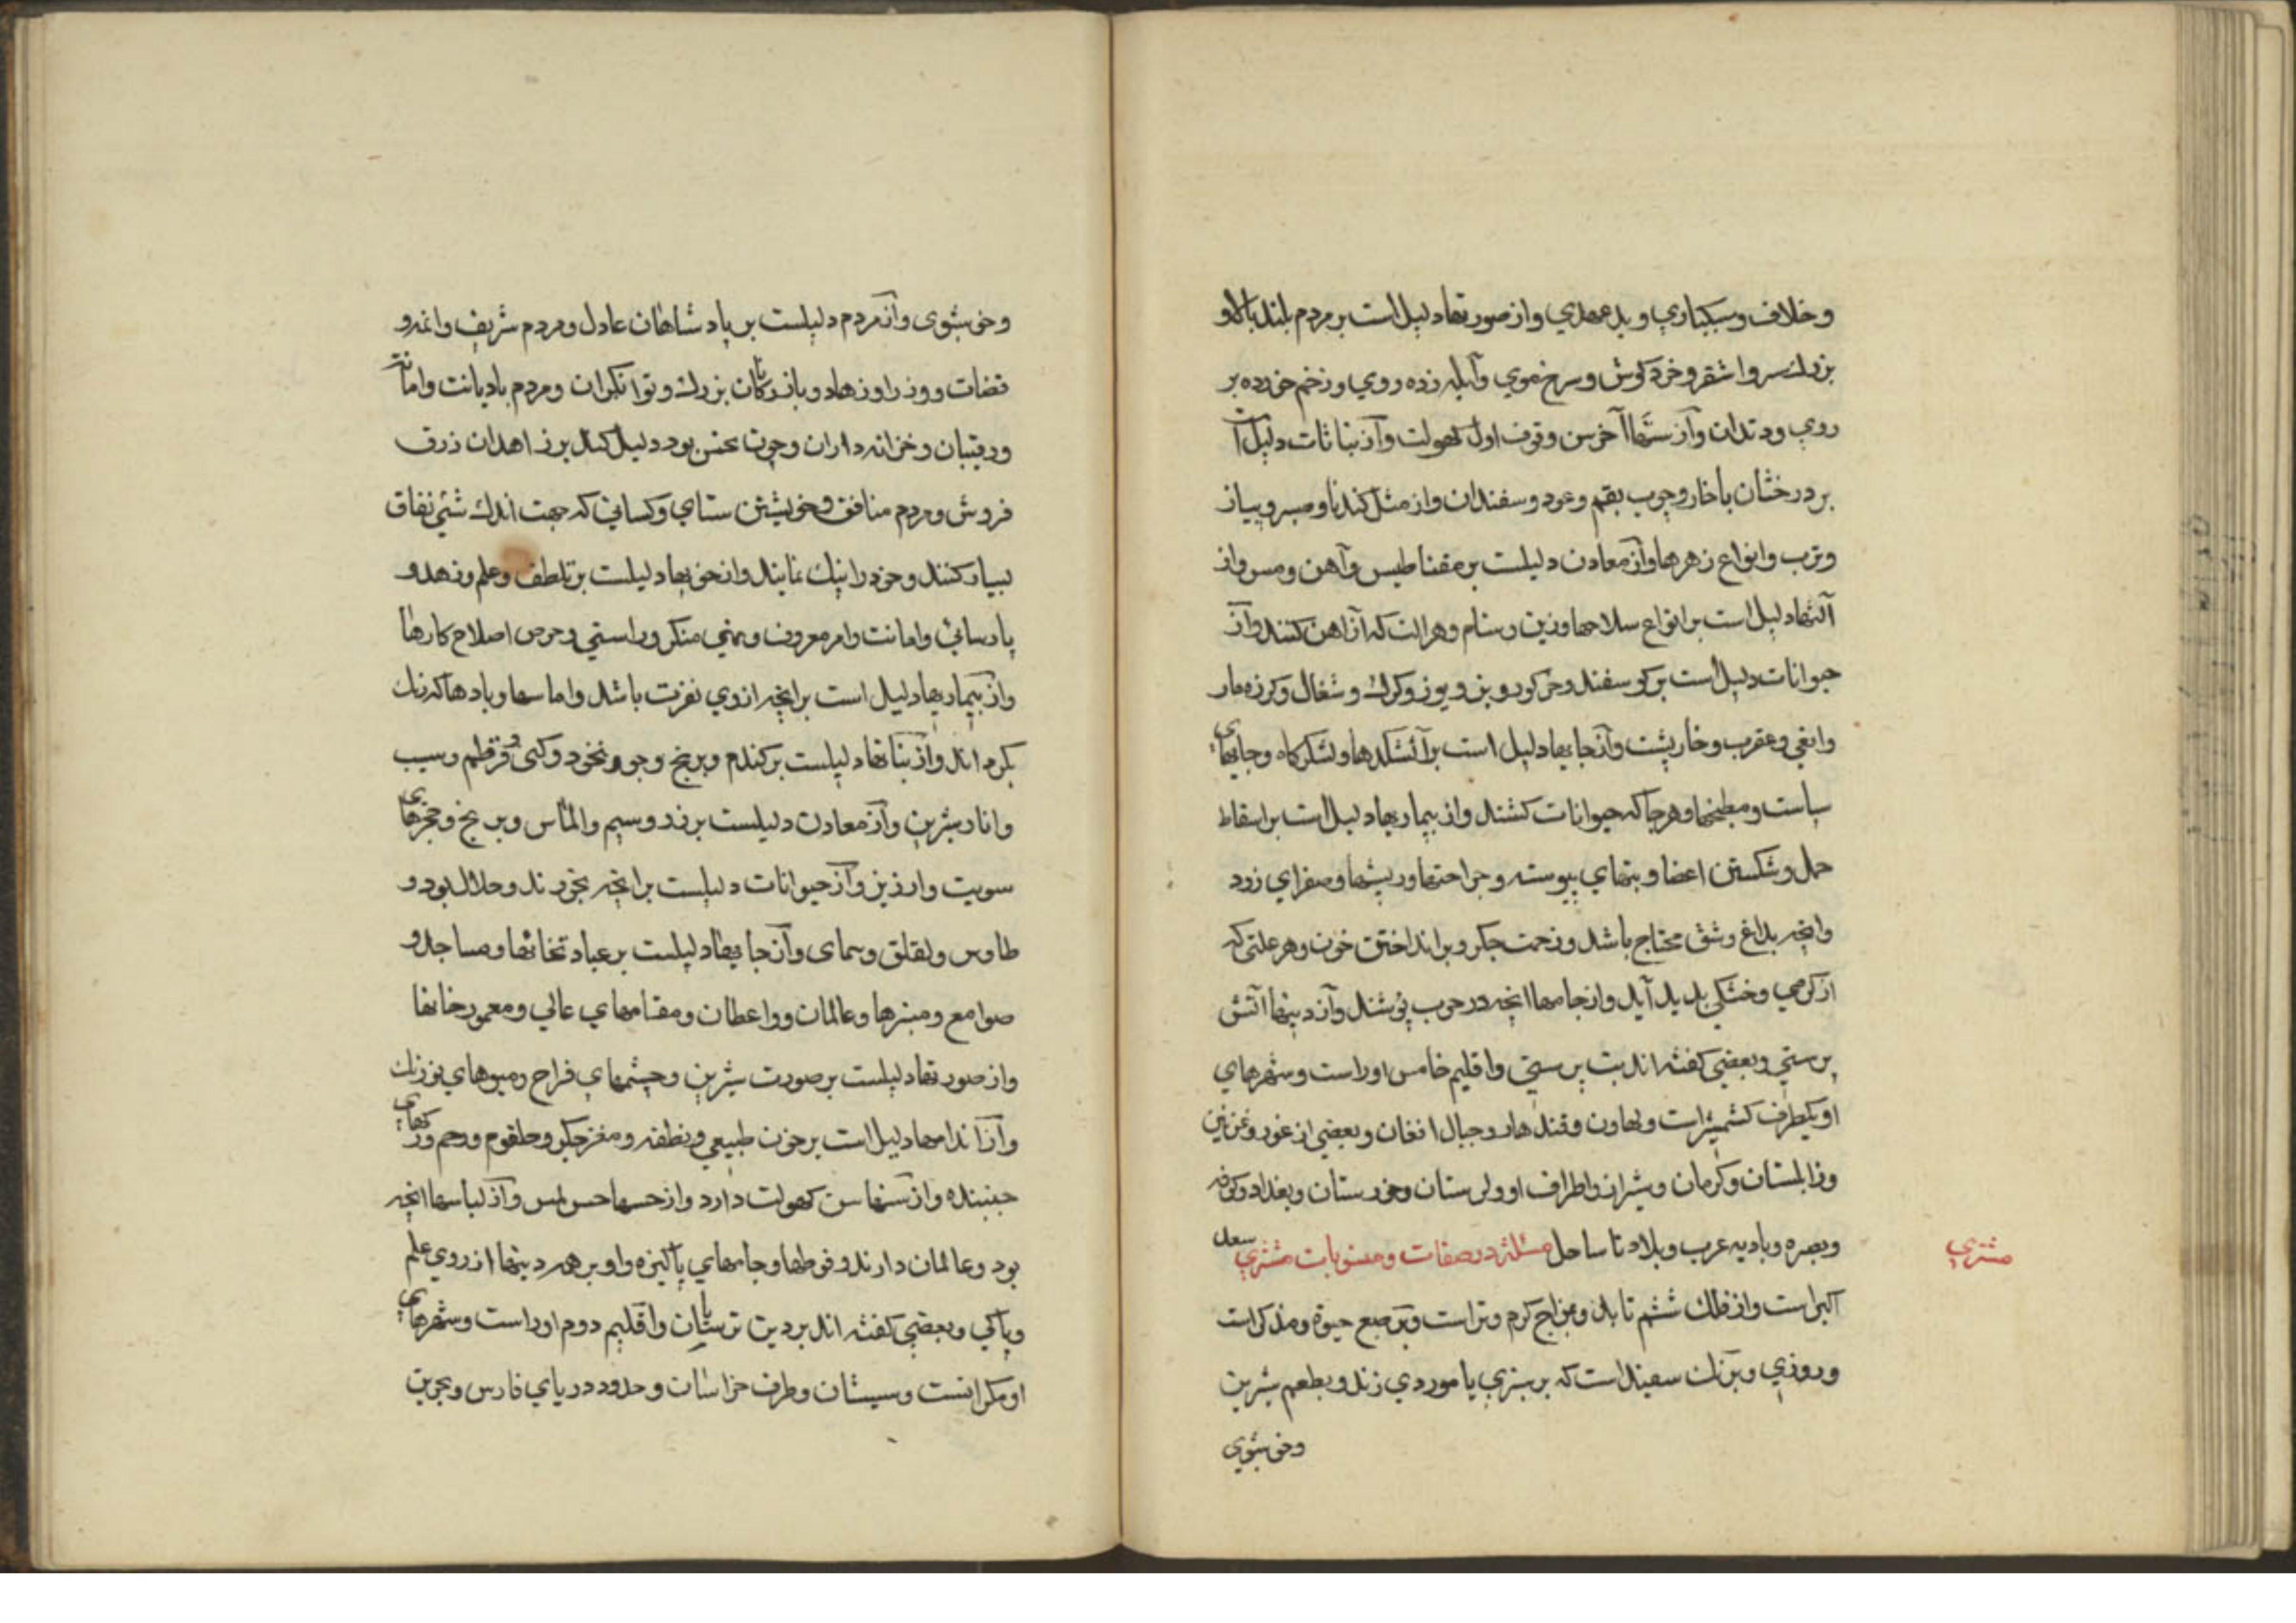 وخلاف وسبکباری وبدعهدی واز صورتها دلیل است بر مردم بلند بالا و
بزرك سر واشقر وخرد کوش وسرخ موی وآبله زده روی وزخم خورده بر
روی ودندان وآز سنها آخر سن وقوف اول کهولت وآز نباتات دلیل است
بر درختان باخار وچوب بقم وعود وسفندان واز مثل کندنا وسیر وپیاز
وترب وانواع زهرها وآز معادن دلیلست بر مقناطیس وآهن ومس واز
آلتها دلیل است بر انواع سلاحها وزین وستام وهر الت که از آهن کنند وآز
حیوانات دلیل است بر کوسفند وخر کور وبز ویوز وکرك وشغال وکرزه مار
وافعی وعقرب وخارپشت وآز جایها دلیل است بر آتشکدها ولشکرکاه وجایهای
سیاست ومطبخها وهرجا که حیوانات کشند واز بیماریها دلیل است بر اسقاط
حمل وشکستن اعضا وتبهای پیوسته وجراحتها وریشها وصفرای زرد
وانچه بداغ وشق محتاج باشد وزحمت جکر وبر انداختن خون وهر علتی که
از کرمی وخشکی بدید آید واز جامها انچه در حرب پوشند وآز دینها آتش
پرستی وبعضی کفته اند بت پرستی واقلیم خامس اوراست وشهرهای
او یکطرف کشمیرست ولهاون وقندهار وجبال افغان وبعضی از غور وغزنین
وزابلستان وکرمان وشیراز واطراف او ولرستان وخورستان وبغداد وکوفه
وبصره وبادیه عرب وبلاد تا ساحل مسئله در صفات ومنسوبات مشتری سعد
مشتری
اکبر است واز فلك ششم تابد ومزاج کرم وتر است وبر طبع حیوة ومذکر است
وروزی وبرنك سفیداست که بر سبزی یا موردی زند وبطعم شیرین
وخوشبوی
وخوشبوی وآز مردم دلیلست بر پادشاهان عادل ومردم شریف وائمه و
قضات ووزرا وزهاد وبازرکانان بزرك وتوانکران ومردم بادیانت وامانت
ورقیبان وخزانه داران وچون نحس بود دلیل کند بر زاهدان زرق
فروش ومردم منافق وخویشتن ستای وکسانی که جهت اندك شیٔ نفاق
بسیار کنند وخود را نیك نمایند واز خویها دلیلست بر تلطف وعلم وزهد و
پارسائی وامانت وامر معروف ونهی منکر وراستی وحرص اصلاح کارها
واز بیماریها دلیل است بر انچه از وی نفرت باشد واماسها وبادها که زنك
بکرداند وآز نباتها دلیلست بر کندم وبرنج وجو ونخود وکبی وقرطم وسیب
وانار شیرین وآز معادن دلیلست بر زر وسیم والماس وبرنج وحجرهای
سویت وارزیز وآز حیوانات دلیلست بر انچه بخورند وحلال بود و
طاوس ولقلق وهمای وآز جایها دلیلست بر عبادتخانها ومساجد و
صوامع ومنبرها وعالمان وواعظان ومقامهای عالی ومعمور خانها
واز صورتها دلیلست بر صورت شیرین وچشمهای فراخ ومیوهای بوزنك
وآز اندامها دلیل است بر خون طبیعی ونطفه ومغز جکر وحلقوم ورحم ورکهای
جنبنده واز سنها سن کهولت دارد واز حسها حس لمس وآز لباسها انچه
بود وعالمان دارند وفوطها وجامهای پاکیزه واو بر همه دینها از روی علم
وپاکی وبعضی کفته اند بر دین ترسایان واقلیم دوم اوراست وشهرهای
او مکرانست وسیستان وطرف خراسان وحدود دریای فارس وبحرین